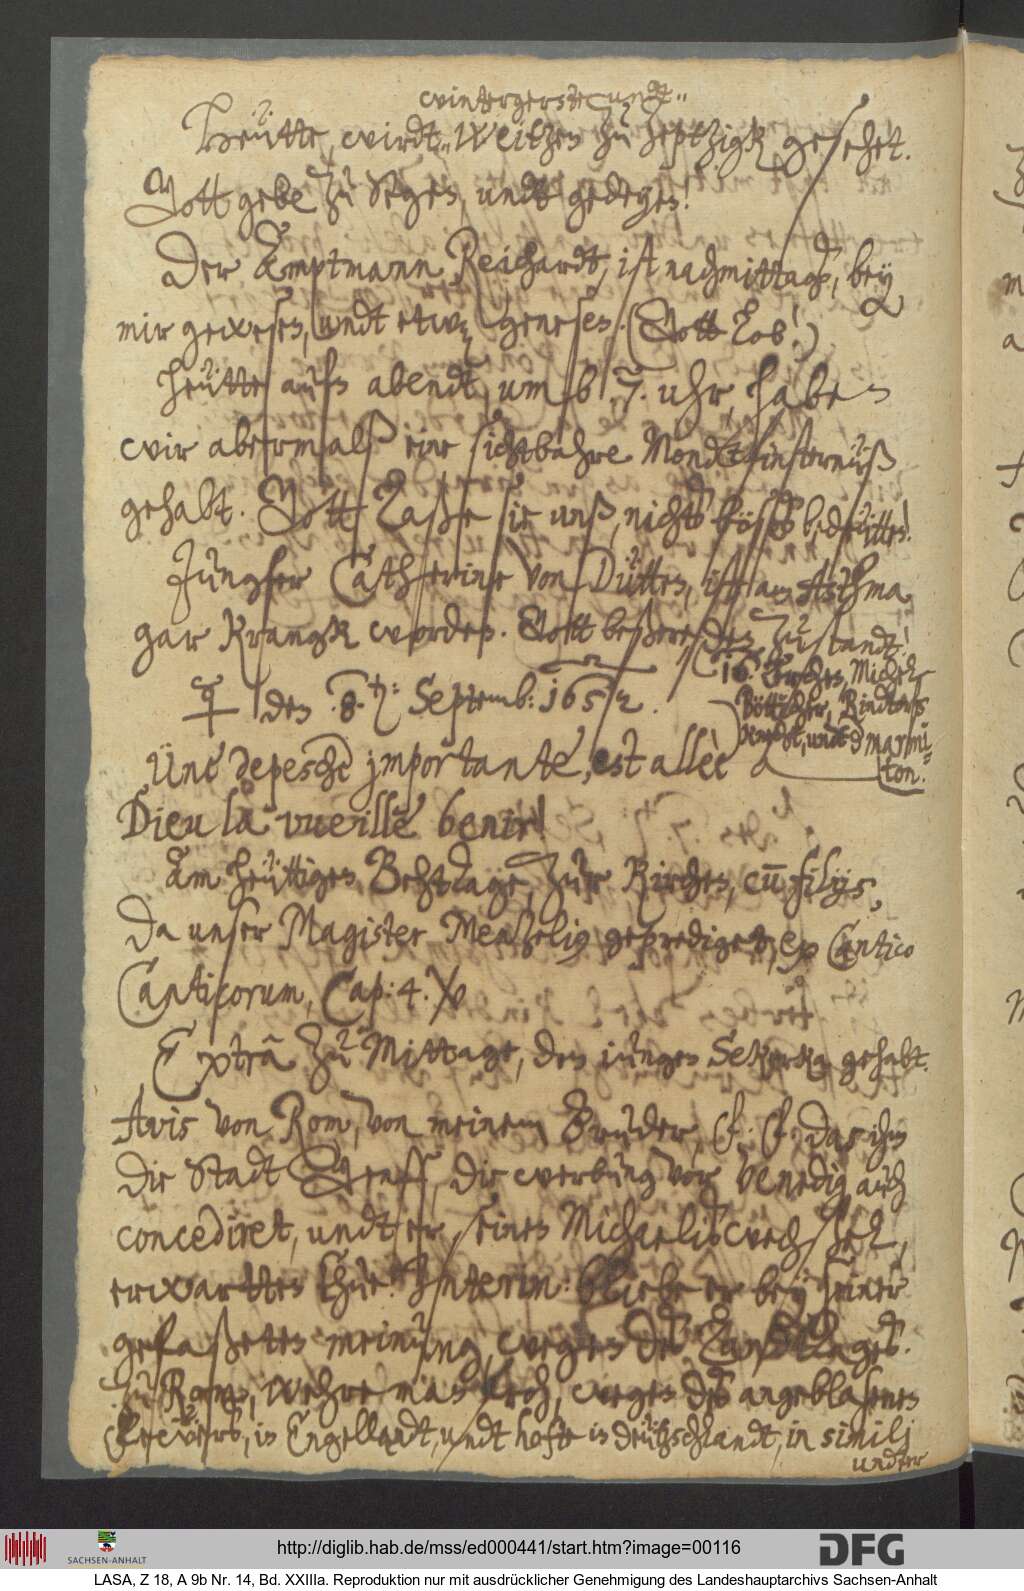 wintergerste undt„
Heütte, wirdt„ Weitzen zu Zeptzigk, gesehet.
Gott gebe zu Segen, undt gedeyen!
Der Amptmann Reichardt, ist nachmittags, bey
mir gewesen, undt etwaß genesen. (Gott lob!)
Heütte aufn abendt, um 6. 7. uhr, haben
wir abermalß eine sichtbahre Mondtfinsternüß
gehabt. Gott laße sie unß, nichts böses bedeütten!
Jungfer Catherine von Dütten, ist am Asthma
gar krangk worden. Gott beßere, den zustandt!
♀ den .8. Septemb: 1652.
16. Kirchen, Michel
Böttcher, Rindtorfs
knecht, undt marmi¬
ton.
Une depesche jmportante, est allée
Dieu la vueille benir!
Am heüttigen Behttage, zur Kirchen, cum filijs,
Da unser Magister Menzelig geprediget, ex Cantico
Canticorum, Cap: 4.
Extra zu Mittage, den iungen Sekerka gehabt.
Avis von Rom, von meinem Bruder, F: F: das ihm
die Stadt Genff, die werbung vor Venedig auch
concediret, undt er, seinen Michaeliswechßel,
erwartten thue. Jnterim: bliebe er bey seiner
gefaßeten meinung, wegen des Landtages.
Zu Rom, wehre man froh, wegen des angeblasenen
Kewers, in Engellandt, undt hofte in deützschlandt, in simili
undter
http://diglib.hab.de/mss/ed000441/start.htm?image=00116
SACHSEN-ANHALT
DFG
LASA, Z 18, A 9b Nr. 14, Bd. XXIIIa. Reproduktion nur mit ausdrücklicher Genehmigung des Landeshauptarchivs Sachsen-Anhalt